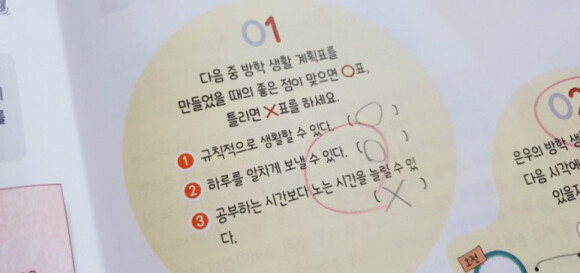 01
다음 중 방학 생활 계획표를
만들었을 때의 좋은 점이 맞으면 O표,
틀리면 X표를 하세요.
1 규칙적으로 생활할 수 있다. (O)
2 하루를 알차게 보낼 수 있다. (O)
3 공부하는 시간보다 노는 시간을 늘릴 수 있
다. (X)
02
은우의 방학 생
다음 시각에
있을지
오전